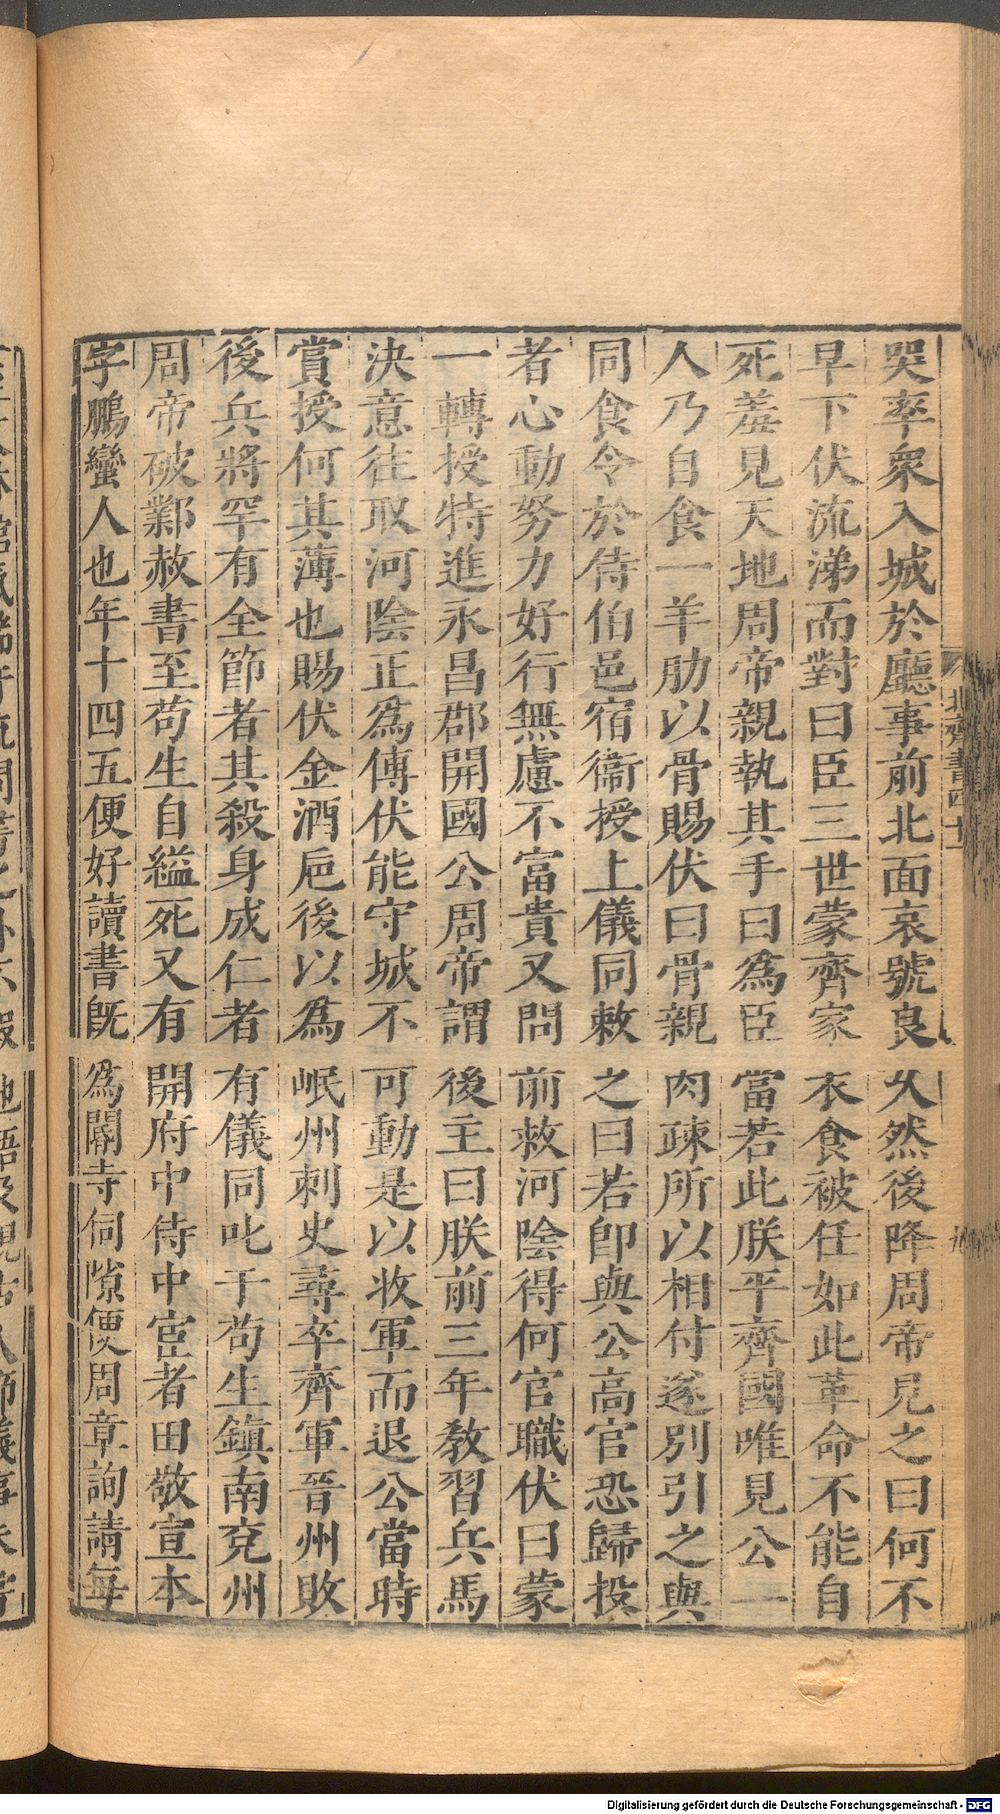 哭率衆入城於廳事前北面哀號良乆然後降周帝見之曰何不
早下伏流涕而對曰臣三世蒙齊家衣食被任如此革命不能自
死羞見天地周帝親執其手曰爲臣當若此朕平齊國唯見公一
人乃自食一羊肋以骨賜伏曰骨親肉疎所以相付遂別引之與
同食令於侍伯邑宿衞授上儀同敕之曰若即與公高官恐歸投
者心動努力好行無慮不富貴又問前救河陰得何官職伏曰蒙
一轉授特進永昌郡開國公周帝謂後主曰朕前三年教習兵馬
決意往取河陰正爲傅伏能守城不可動是以收軍而退公當時
賞授何其薄也賜伏金酒巵後以爲岷州刺史尋卒齊軍晉州敗
後兵將罕有全節者其殺身成仁者有儀同叱于苟生鎮南兗州
周帝破鄴赦書至苟生自縊死又有開府中侍中宦者田敬宣本
字鵬蠻人也年十四五便好讀書旣爲閽寺伺隙便周章詢請每
北齊書四十一
九
Digitalisierung gefördert durch die Deutsche Forschungsgemeinschaft - DFG